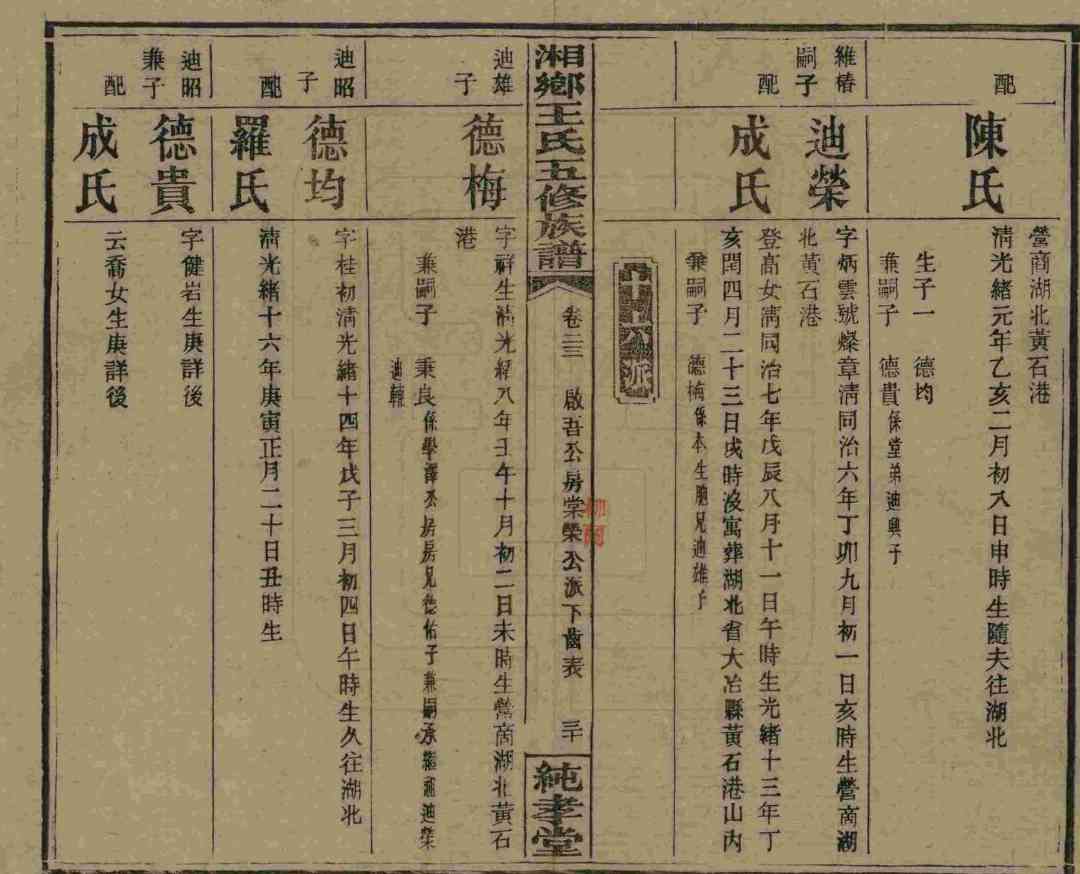 配
陳氏
營商湖北黃石港
淸光緒元年乙亥二月初八日申時生隨夫往湖北
生子一　德均
兼嗣子　德貴係堂弟迪興子
維椿
嗣子
迪榮
字炳雲號燦章淸同治六年丁卯九月初一日亥時生營商湖
北黃石港
配
成氏
登高女淸同治七年戊辰八月十一日午時生光緒十三年丁
亥閏四月二十三日戌時沒寓葬湖北省大冶縣黃石港山內
兼嗣子　德梅係本生胞兄迪雄子
湘鄉王氏五修族譜
卷二三
啟吾公房棠榮公派下齒表
三十
純孝堂
迪雄
子
德梅
字祥生淸光緒八年壬午十月初二日未時生營商湖北黃石
港
兼嗣子　秉良係學譯公房房兄德佑子兼嗣承繼祧迪榮
迪昭
子
德均
字桂初淸光緒十四年戊子三月初四日午時生久往湖北
配
羅氏
淸光緒十六年庚寅正月二十日丑時生
迪昭
兼子
德貴
字健岩生庚詳後
配
成氏
云喬女生庚詳後